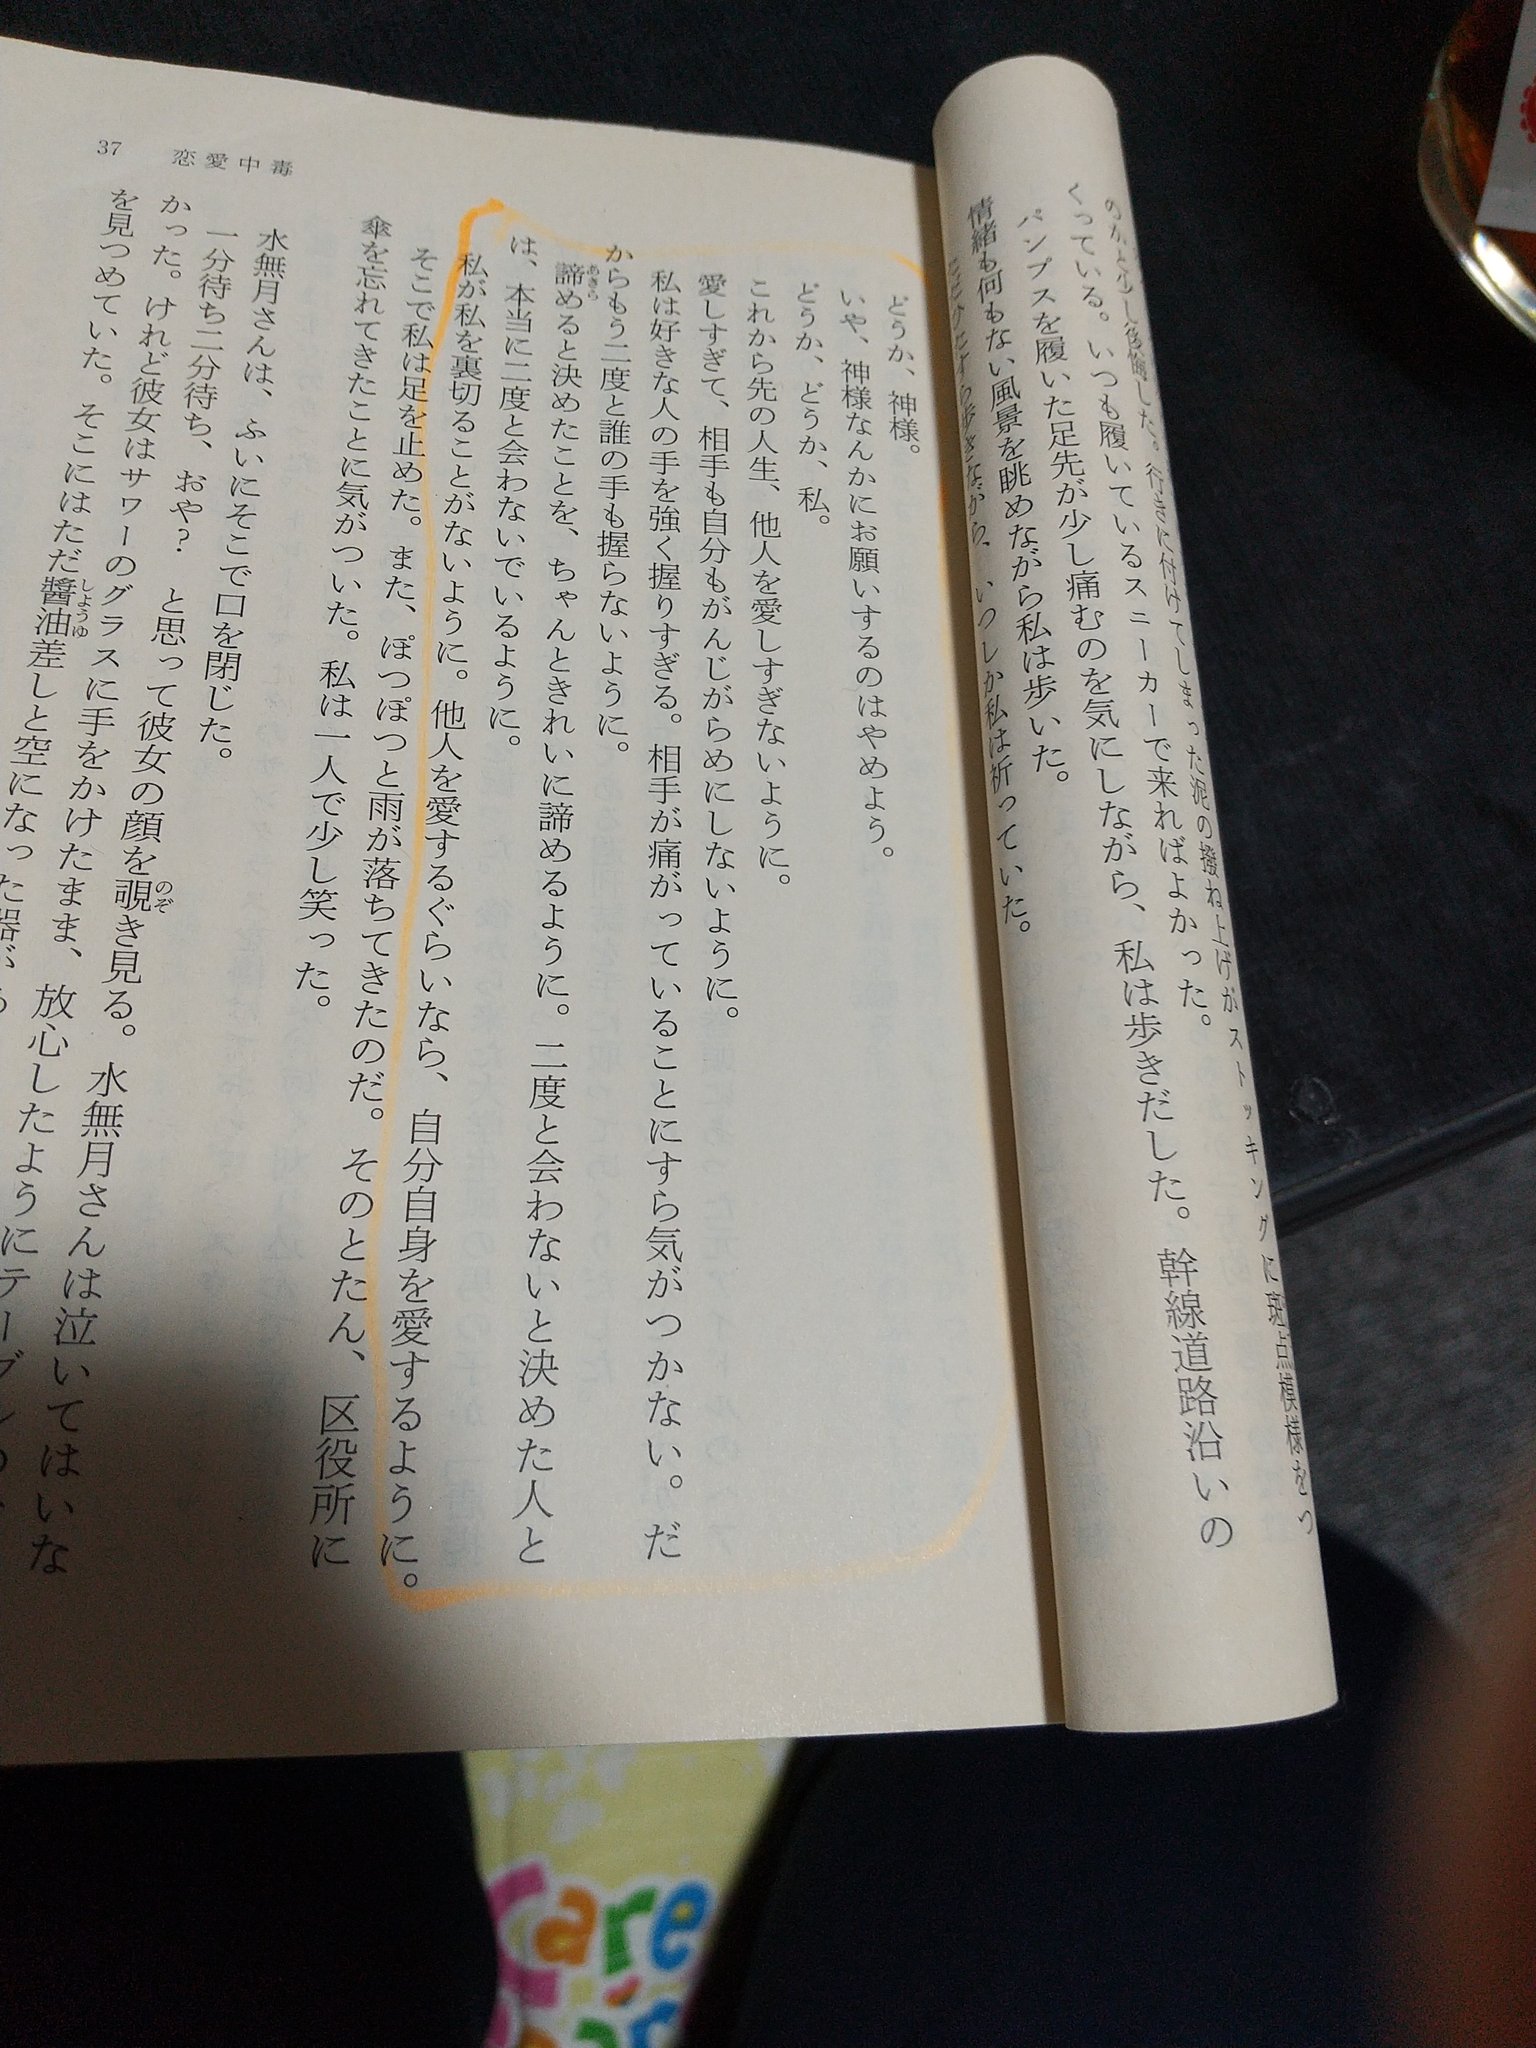 のかと少し後悔した。行きに付けてしまった泥の撥ね上げがストッキングに斑点模様をつ
くっている。いつも履いているスニーカーで来ればよかった。
パンプスを履いた足先が少し痛むのを気にしながら、私は歩きだした。幹線道路沿いの
情緒も何もない風景を眺めながら私は歩いた。
歩きながら、いつしか私は祈っていた。
37 恋愛中毒
どうか、神様。
いや、神様なんかにお願いするのはやめよう。
どうか、どうか、私。
これから先の人生、他人を愛しすぎないように。
愛しすぎて、相手も自分もがんじがらめにしないように。
私は好きな人の手を強く握りすぎる。相手が痛がっていることにすら気がつかない。だ
からもう二度と誰の手も握らないように。
諦めると決めたことを、ちゃんときれいに諦めるように。二度と会わないと決めた人と
あきら
は、本当に二度と会わないでいるように。
私が私を裏切ることがないように。他人を愛するぐらいなら、自分自身を愛するように。
そこで私は足を止めた。また、ぽつぽつと雨が落ちてきたのだ。そのとたん、区役所に
傘を忘れてきたことに気がついた。私は一人で少し笑った。
水無月さんは、ふいにそこで口を閉じた。
一分待ち二分待ち、おや？ と思って彼女の顔を覗き見る。水無月さんは泣いてはいな
のぞ
かった。けれど彼女はサワーのグラスに手をかけたまま、放心したようにテーブルの
を見つめていた。そこにはただ醬油差しと空になった器が
しょうゆ
Care
Bear